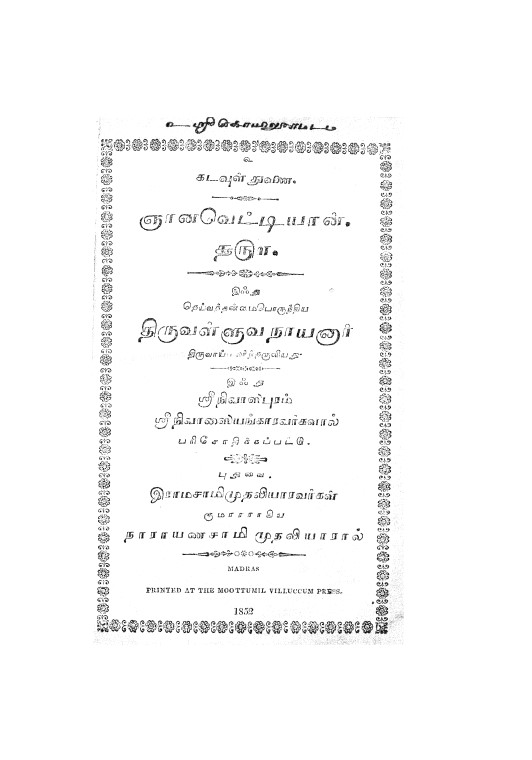 உ
கடவுள் துணை.
ஞானவெட்டியான்.
இஃது
தெய்வத்தன்மைபொருந்திய
திருவள்ளுவநாயனார்
இஃது
ஸ்ரீநிவாஸபுரம்
ஸ்ரீநிவாஸையங்காரவர்களால்
பரிசோதிக்கப்பட்டு.
புதுவை.
இராமசாமிமுதலியாரவர்கள்
குமாரராகிய
நாராயணசாமி முதலியாரால்
MADRAS
PRINTED AT THE MOOTTUMIL VILLUCCUM PRESS.
1852